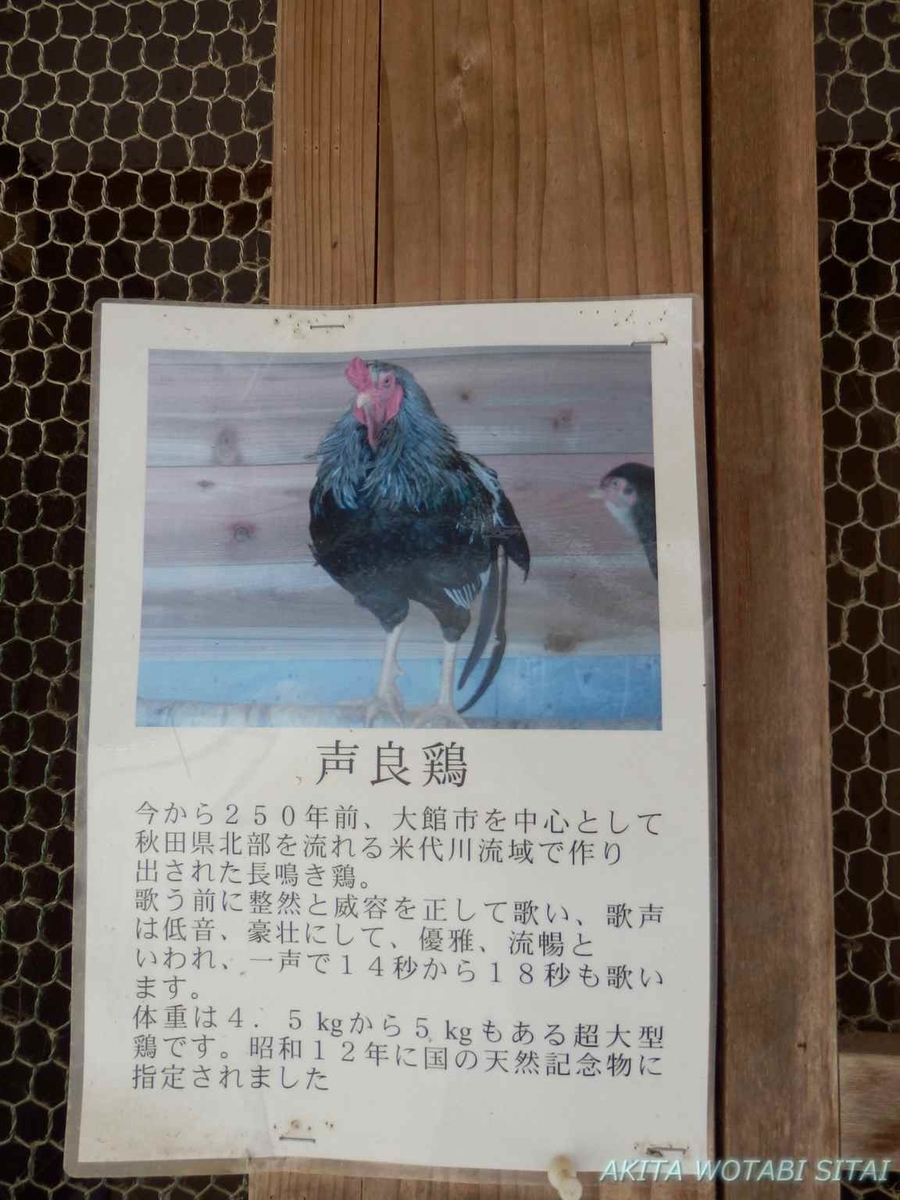 声良鶏
今から２５０年前、大館市を中心として
秋田県北部を流れる米代川流域で作り
出された長鳴き鶏。
歌う前に整然と威容を正して歌い、歌声
は低音、豪壮にして、優雅、流暢と
いわれ、一声で１４秒から１８秒も歌い
ます。
体重は４．５kgから５kgもある超大型
鶏です。昭和１２年に国の天然記念物に
指定されました
AKITA WOTABI SITAI